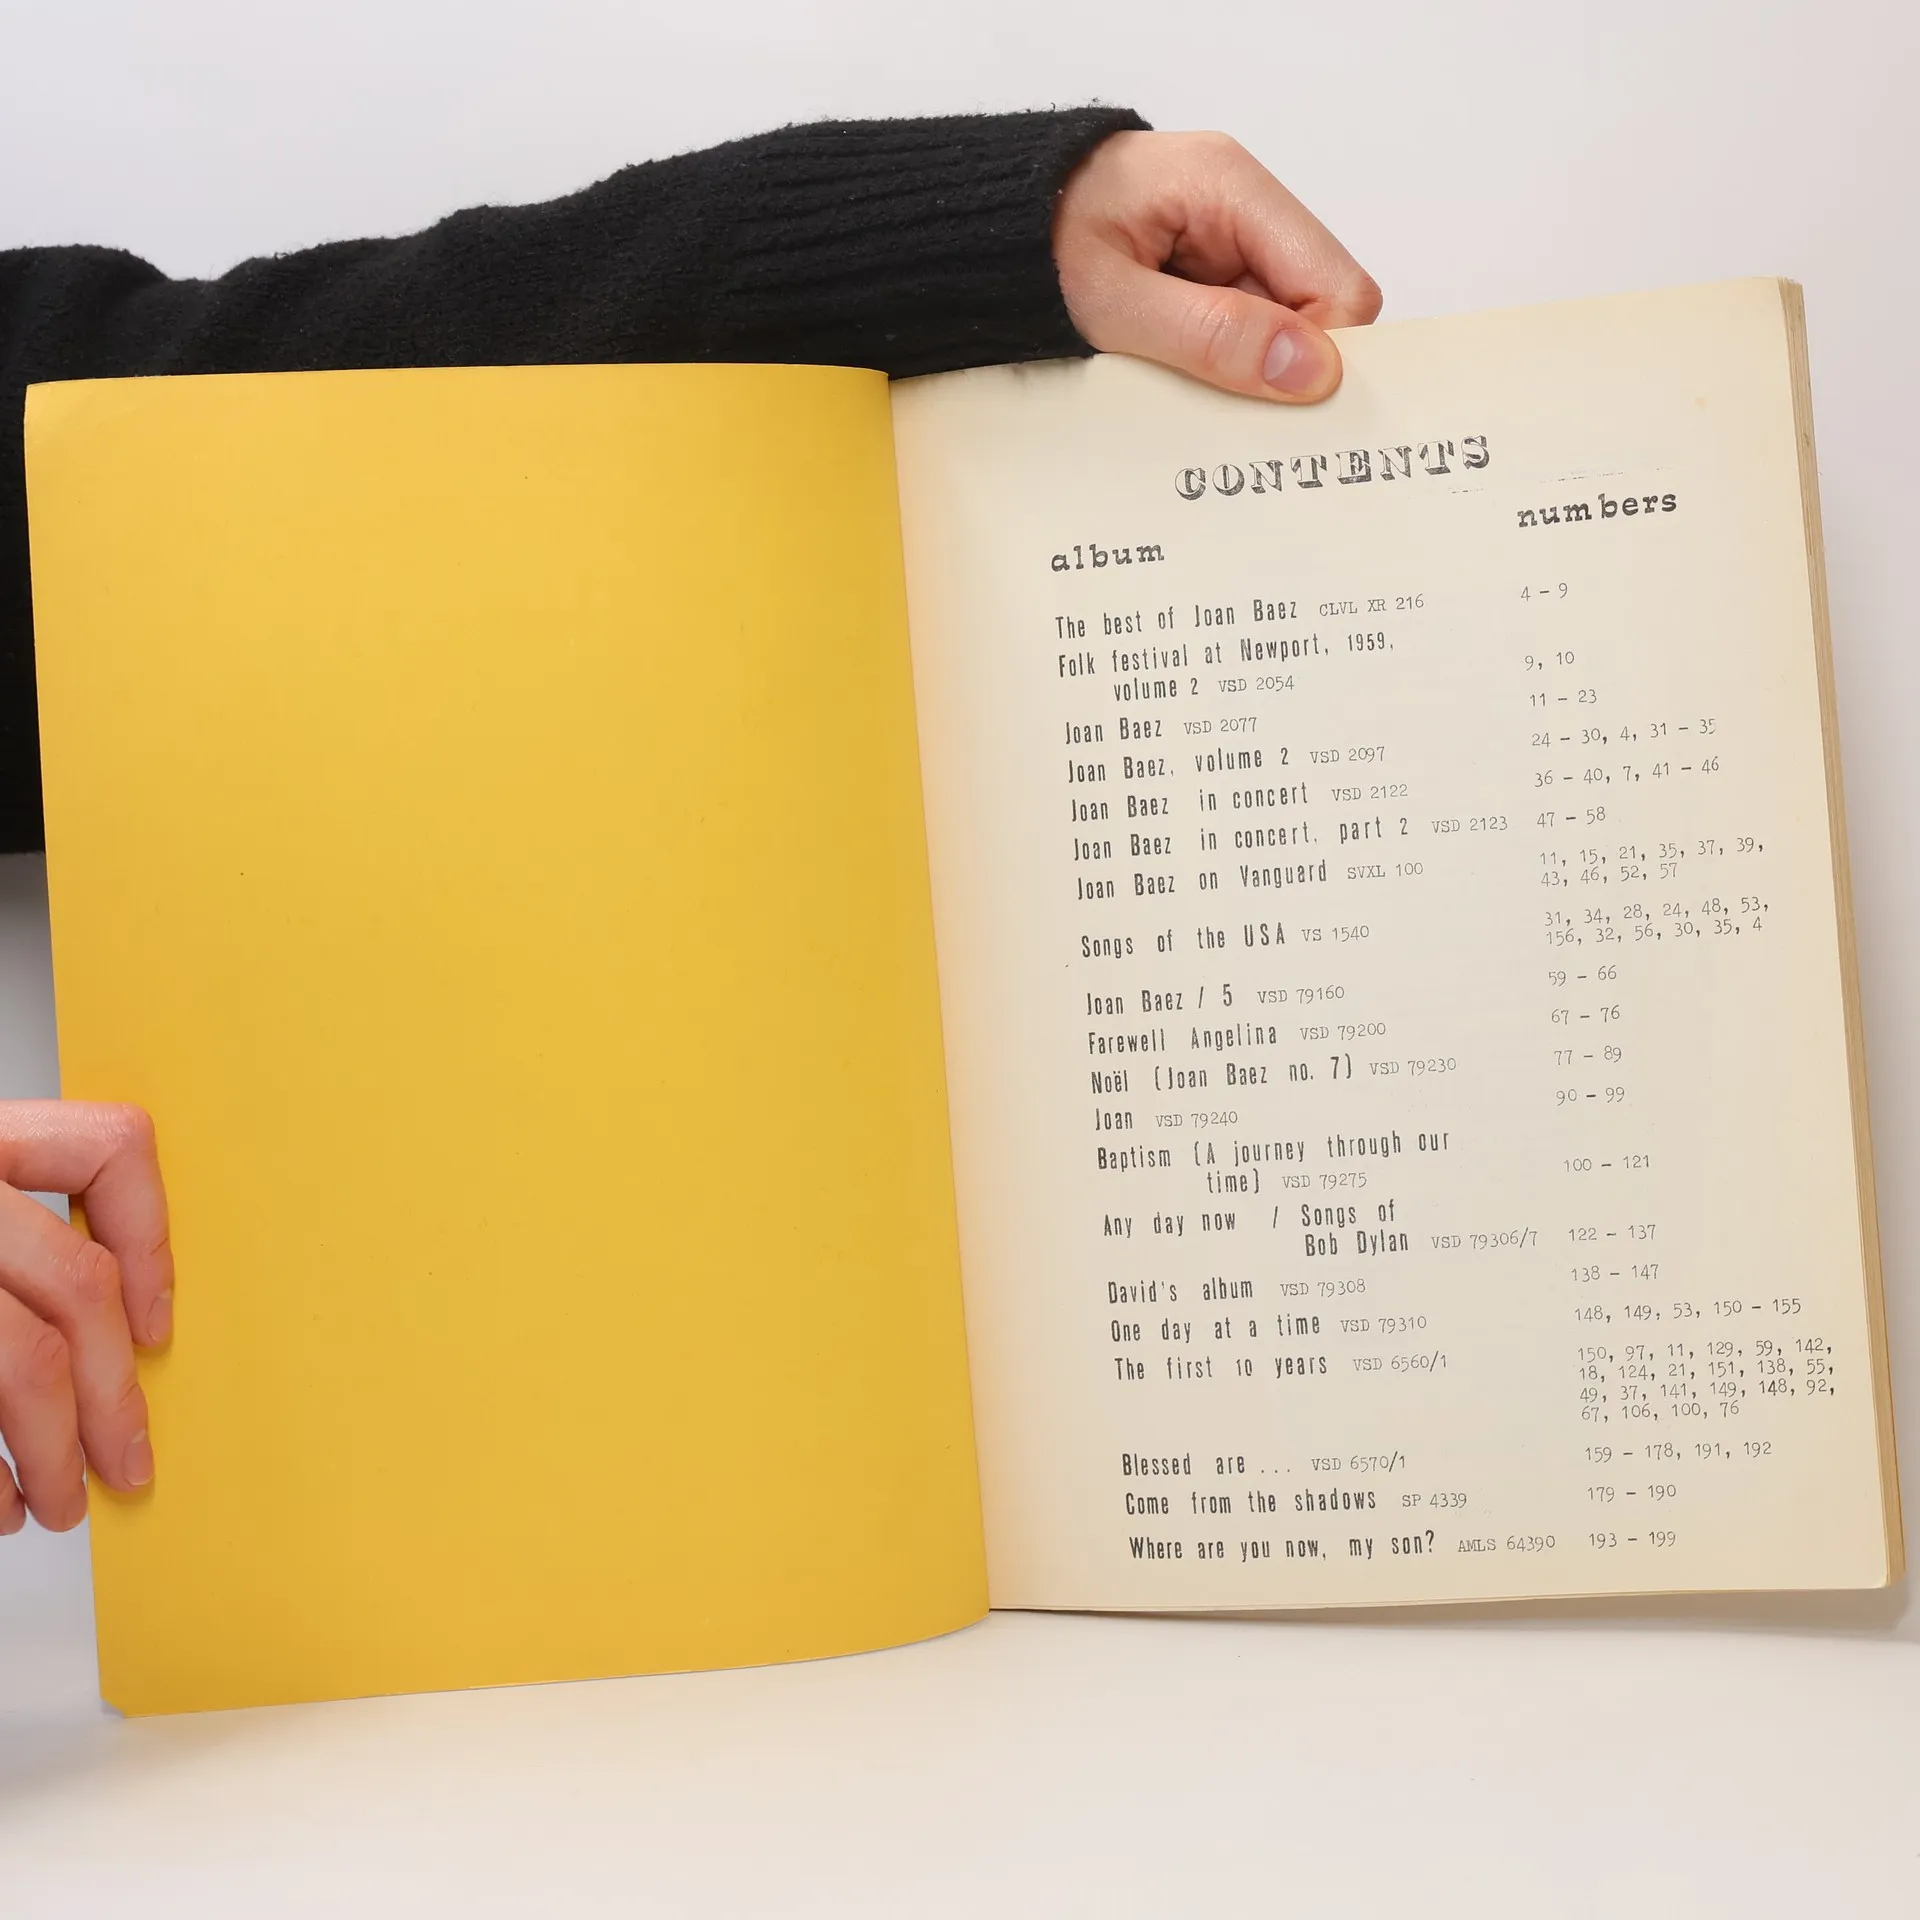 CONTENTS
album numbers
The best of Joan Baez CLVL XR 216 4 - 9
Folk festival at Newport, 1959,
volume 2 VSD 2054 9, 10
Joan Baez VSD 2077 11 - 23
Joan Baez, volume 2 VSD 2097 24 - 30, 4, 31 - 35
Joan Baez in concert VSD 2122 36 - 40, 7, 41 - 46
Joan Baez in concert, part 2 VSD 2123 47 - 58
Joan Baez on Vanguard SVXL 100 11, 15, 21, 35, 37, 39,
43, 46, 52, 57
Songs of the USA VS 1540 31, 34, 28, 24, 48, 53,
156, 32, 56, 30, 35, 4
Joan Baez / 5 VSD 79160 59 - 66
Farewell Angelina VSD 79200 67 - 76
Noël (Joan Baez no. 7) VSD 79230 77 - 89
Joan VSD 79240 90 - 99
Baptism (A journey through our
time) VSD 79275 100 - 121
Any day now / Songs of
Bob Dylan VSD 79306/7 122 - 137
David's album VSD 79308 138 - 147
One day at a time VSD 79310 148, 149, 53, 150 - 155
The first 10 years VSD 6560/1 150, 97, 11, 129, 59, 142,
18, 124, 21, 151, 138, 55,
49, 37, 141, 149, 148, 92,
67, 106, 100, 76
Blessed are ... VSD 6570/1 159 - 178, 191, 192
Come from the shadows SP 4339 179 - 190
Where are you now, my son? AMLS 64390 193 - 199